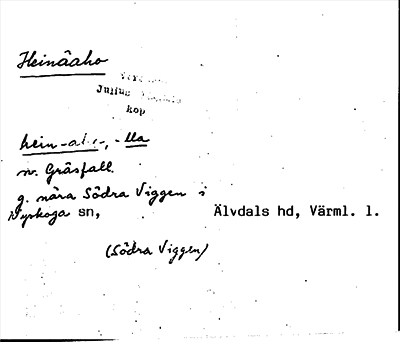 Heinäaho
Julius
kop
hein-aho, -lla
n. Gräsfall.
g. nära Södra Viggen i
Nyskoga sn, Älvdals hd, Värml. l.
(Södra Viggen)